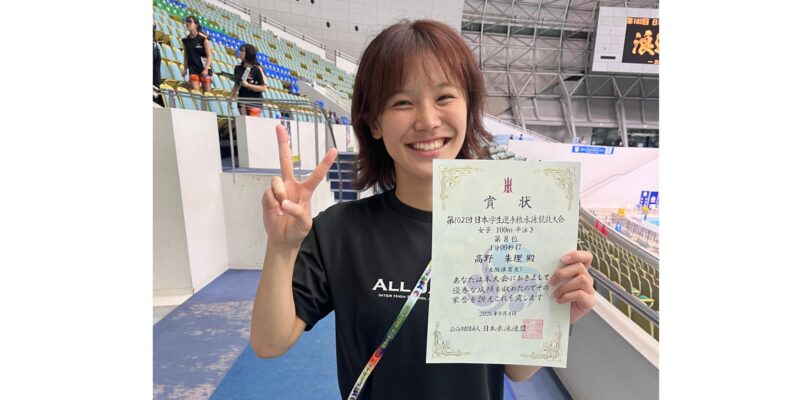 賞状
第102回日本学生選手権水泳競技大会
女子 100m 平泳ぎ
第8位
1分09秒47
高野 朱理 殿
(大阪体育大)
あなたは本大会におきまして
優秀な成績を収めたのでその
栄誉を讃えこれを賞します
2026年9月4日
公益財団法人 日本水泳連盟
ALL
INTER HIGH SCHOOL
第102回 日本